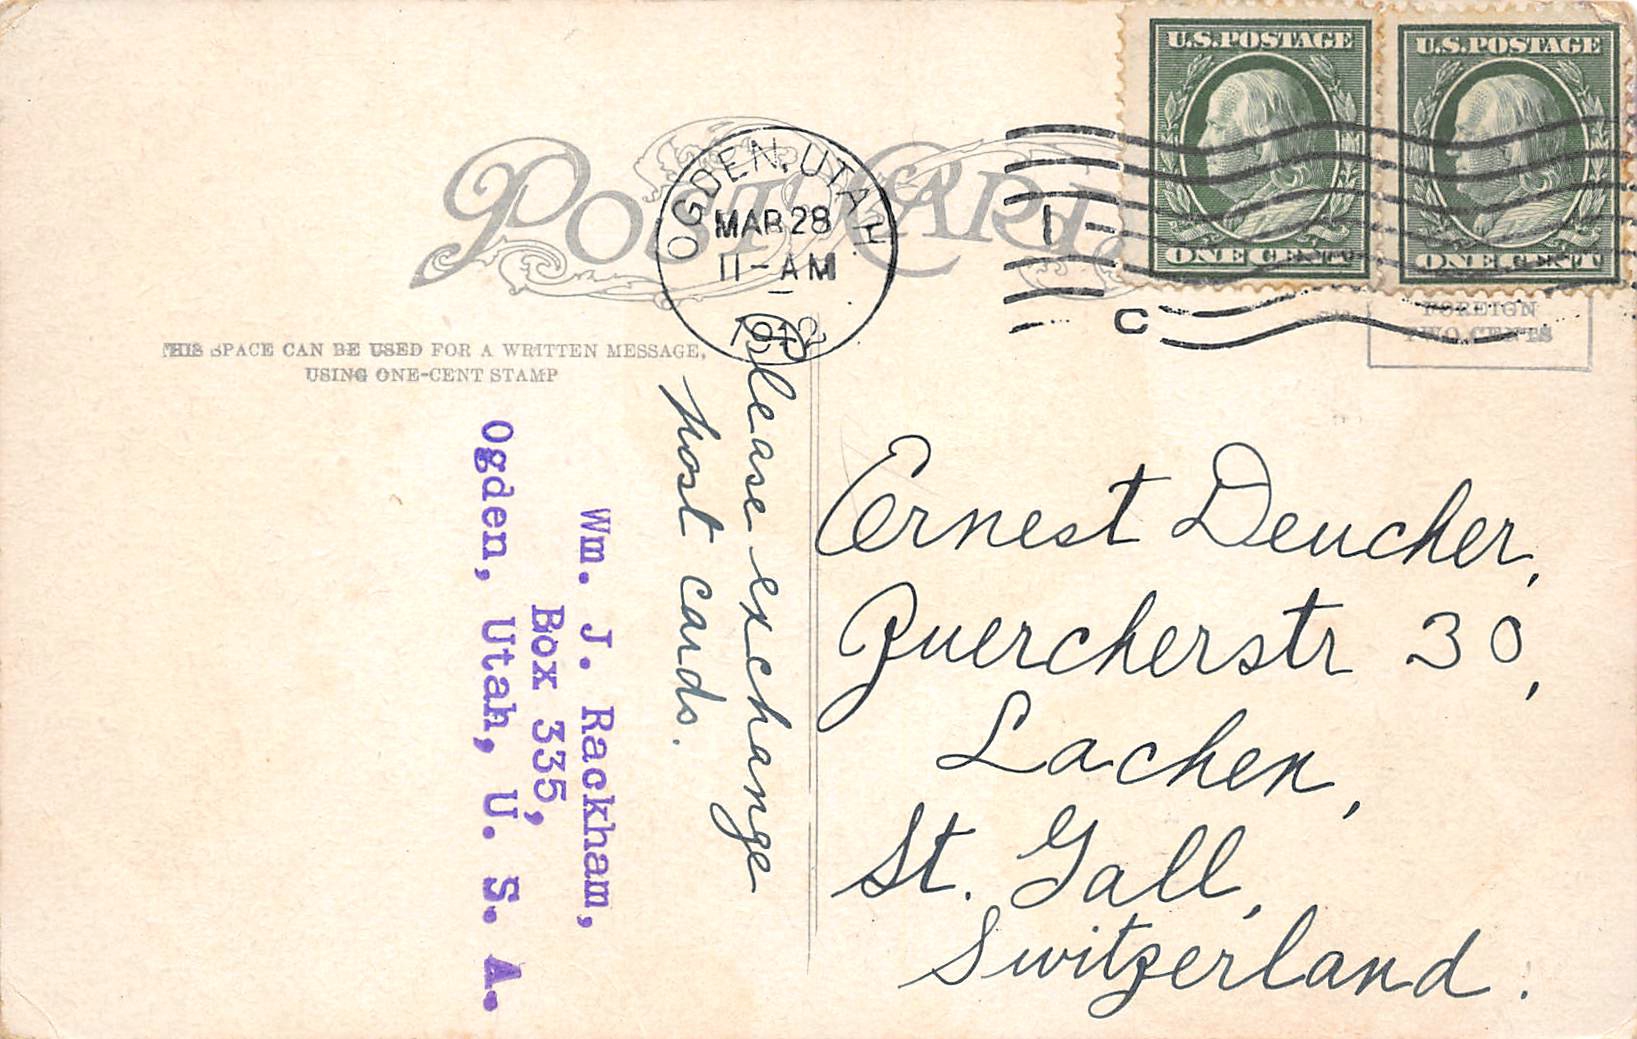 U.S.POSTAGE
ONE CENT
U.S.POSTAGE
ONE CENT
POST CARD
OGDEN, UTAH
MAR 28
11-AM
1910
1
C
FOREIGN
TWO CENTS
THIS SPACE CAN BE USED FOR A WRITTEN MESSAGE,
USING ONE-CENT STAMP
Please exchange
post cards.
Wm. J. Rackham,
Box 335,
Ogden, Utah, U. S. A.
Ernest Deucher,
Zuercherstr 30,
Lachen,
St. Gall,
Switzerland.